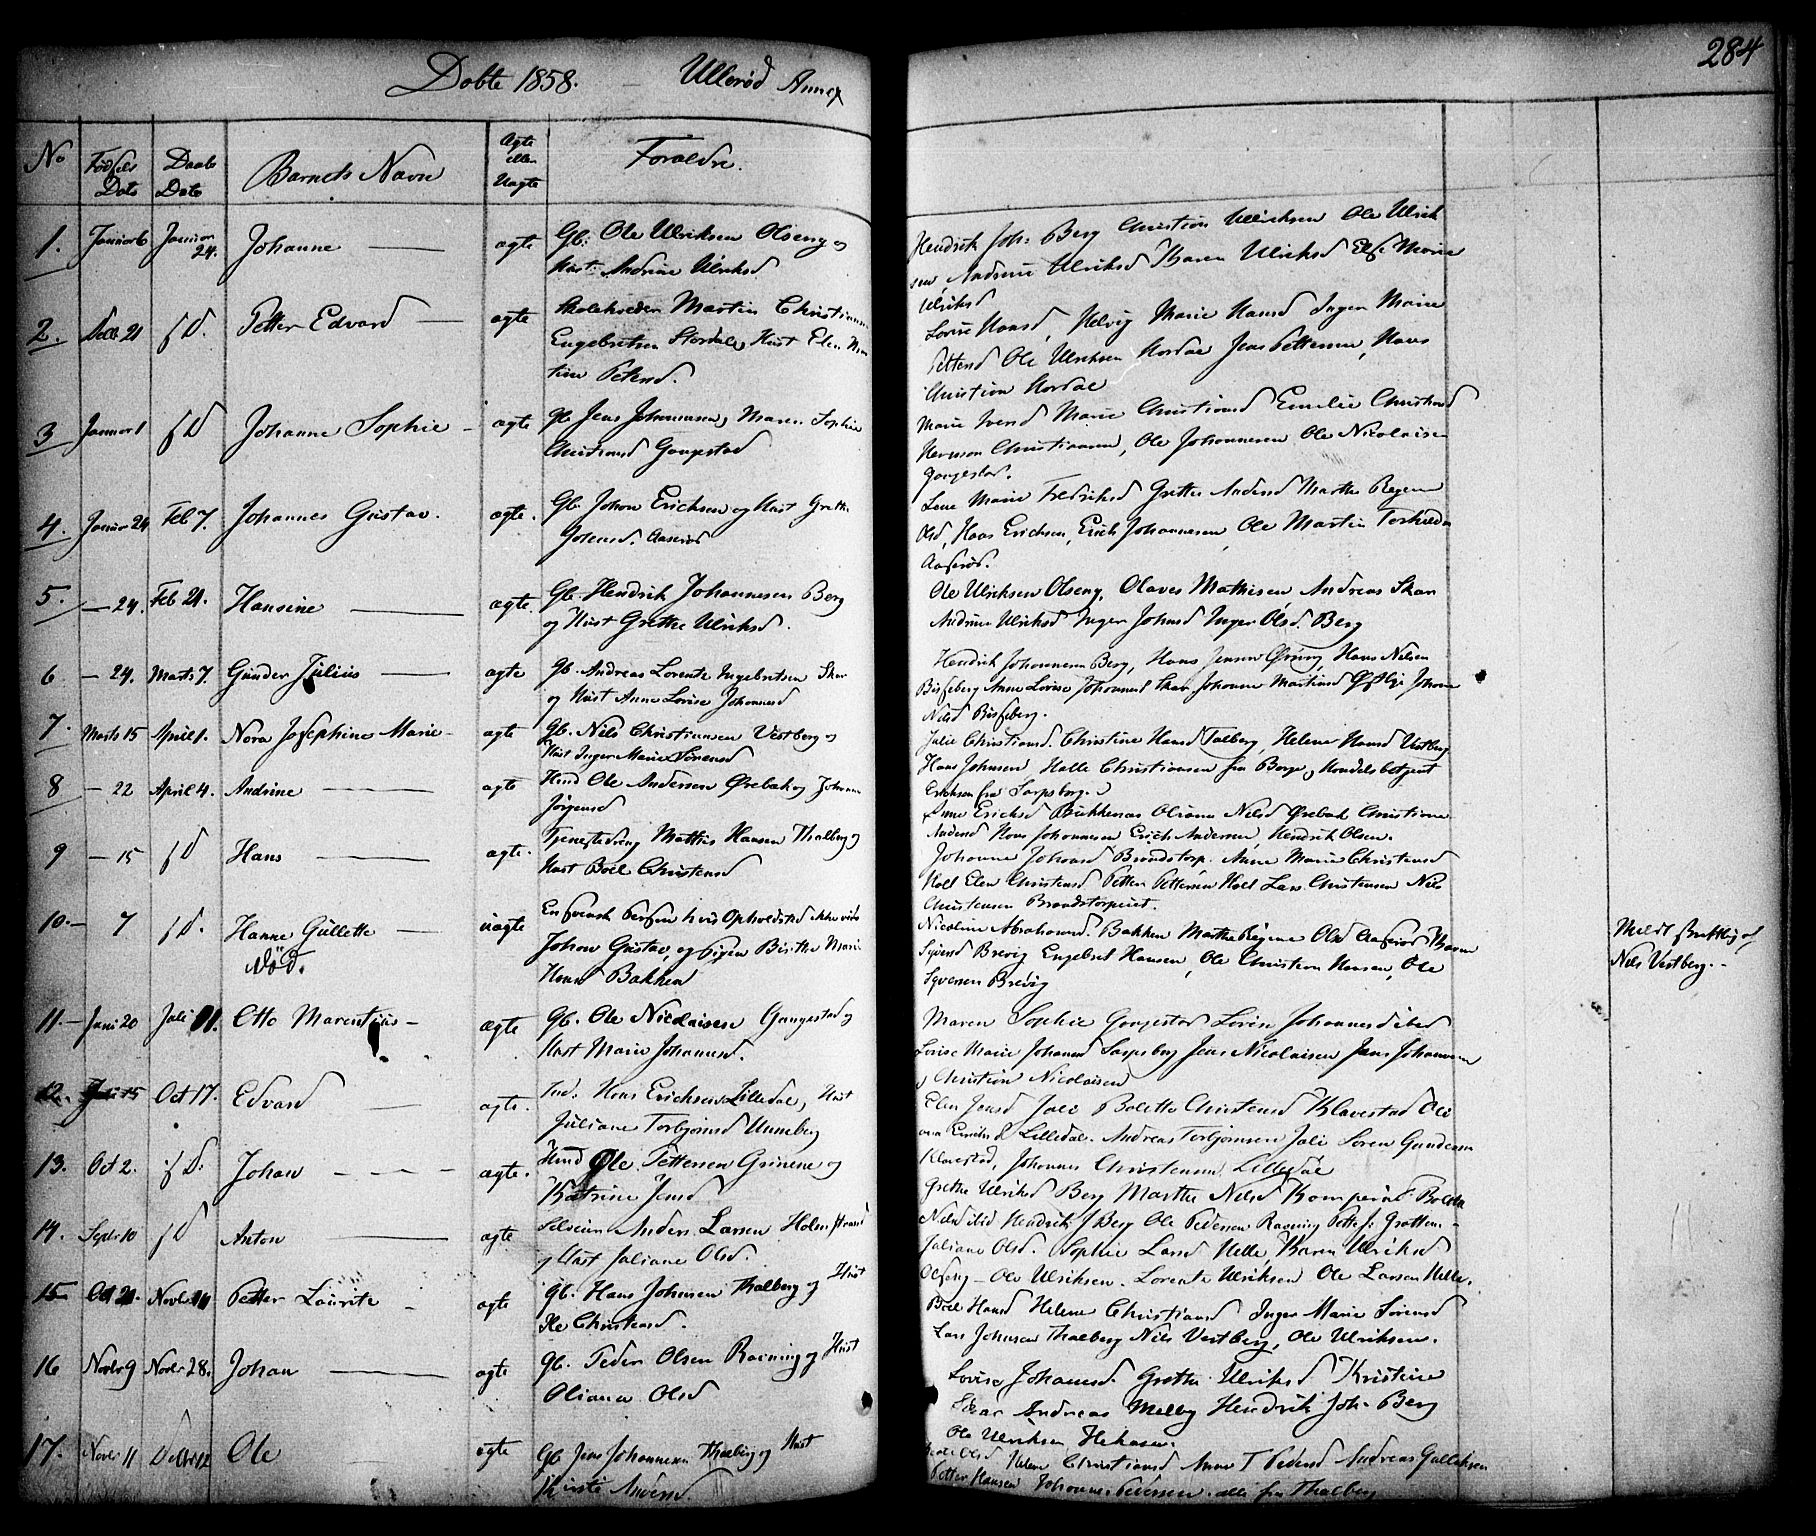 284
Døbte 1858. – Ullerød Annex
No Fødsels Dato Daabs Dato Barnets Navn Ægte eller Uægte Forældre.
1. Januar 6 Januar 24. Johanne — ægte Gb: Ole Ulriksen Olseng og
Hust: Andrine Ulriksd
Hendrik Joh: Berg Christian Ulrichsen Ole Ulrik
sen, Andrine Ulriksd Karen Ulriksd Else Marie
Ulriksd
2. Decb 21 s D. Petter Edvard — ægte Skoleholder Martin Christiansen
Engebretsen Hordale, Hust Elen Mar
tine Petersd.
Lovise Hansd, Helvig Marie Hansd Inger Marie
Pettersd Ole Ulriksen Hordae Jens Pettersen, Hans
Christian Hordae
3 Januar 1 s D Johanne Sophie – ægte Gb Jens Johannesen, Maren Sophie
Christiansd Gangestad
Marie Iversd Marie Christiansd Emilie Christiansd
Herman Christiansen, Ole Johannesen Ole Nicolaisen
Gangestad.
4. Januar 24 Feb 7. Johannes Gustav. ægte. Gb. Johan Erichsen og Hust Grethe
Johansd. Aaserød
Lene Marie Fredriksd Grethe Andersd Marthe Regine
Olsd, Hans Erichsen, Erich Johannesen, Ole Martin Torkilds
Aaserød.
5. — 24. Feb 21. Hansine — ægte. Gb. Hendrik Johannesen Berg
og Hust Grethe Ulriksd.
Ole Ulriksen Olseng, Olaves Mathisen Andreas Skar
Andrine Ulriksd Inger Johnsd Inger Olsd. Berg
6 — 24. Marts 7. Gunder Julius — ægte Gb. Andreas Lorents Ingebretsen Skar
og Hust Anne Lovise Johannesd
Hendrik Johannesen Berg, Hans Jensen Hans Nilsen
Bisseberg Anne Lovise Johannesd Skar Johanne
Nilsd Bisseberg.
7. Marts 15 April 1. Nora Josephine Marie – ægte Gb. Nils Christiansen Vestberg og
Hust Inger Marie Sørensd
Julie Christiansd. Christine Hansd Talberg, Helene Hansd Vestberg
Hans Johnsen Halle Christiansen fra Borge, Handelsbetjent
Erichsen fra Sarpsborg.
8 — 22 April 4. Andrine — ægte Husmd Ole Andersen Ørebak og Johanne
Jørgensd
Anne Ericksd Bakkenas Oliane Nilsd Ørebak Christiane
Andersd Hans Johannesen Erich Andersen, Hendrik Olsen.
9 — 15 s D Hans — ægte. Tjenestedreng Mathis Hansen Thalberg og
Hust Boel Christensd
Johanne Johansd Brandstorp. Anne Marie Christensd
Holl Elen Christensd Petter Pettersen Holl Lars Christensen Nils
Christensen Brandstorpeiet.
10. — 7 s D. Hanne Gullette — uægte En svensk Person hvis Opholdsted ikke vides
Død.
Johan Gustav, og pigen Birthe Marie
Hansd Bakken
Nicoline Abrahamsd. Bakken Marthe Regine Olsd Aaserød Karen
Syversd Brevig Engebret Hansen, Ole Christian Hansen, Ole
Syversen Brevig
Meldt af
Nils Vestberg. –
11. – Juni 20 Juli 11. Otto Marentius – ægte Gb. Ole Nicolaisen Gangestad og
Hust Marie Johannesd.
Maren Sophie Gangestad Lovise Johannesd ibid
Lovise Marie Johannesd Sarpsborg Jens Nicolaisen Jens Johannesen
og Christian Nicolaisen
12. Juli 15 Oct 17. Edvard — ægte. Ind. Hans Erichsen Lilledal, Hust
Juliane Torbjørnsd Unneberg
Elen Jensd Jale Bolette Christensd Klavestad
Lilledal. Andreas Torbjørnsen Jali Søren Gundersen
Klavestad, Johannes Christensen Lilledal
13. Oct 2. s D. Johan – – – ægte. Husmd Ole Pettersen Grinene og
Katrine Jensd
Grethe Ulriksd Berg Marthe Nilsd Bolette
Nilsd ibid Hendrik J Berg Ole Pedersen Ravning
14. Septr 10 s D Anton — ægte Anders Larsen Holmstrand
og Hust Juliane Olsd
Juliane Olsd. Sophie Larsd Helle, Karen Ulriksd
Olseng – Ole Ulriksen. Lorents Ulriksen Ole Larsen Helle.
15 Oct 21. Novbr Petter Laurits – ægte Gb. Hans Johnsen Thalberg og Hust
Christensd.
Boel Hansd Helene Christiansd Inger Marie Sørensd
Lars Johnsen Thalberg Nils Vestberg, Ole Ulriksen.
16 Novbr 9 Novbr 28. Johan — ægte Gb. Peder Olsen Ravning og Hust
Oliane Olsd
Lovise Johannesd. Grethe Ulriksd Kristine
Skar Andreas Melby Hendrik Joh. Berg
Ole Ulriksen
17. Novbr 11 Decbr 12 Ole ægte Gb Jens Johannesen Thalberg og Hust
Kirsti Andersd.
Olsd Helene Christiansd Anne T Pedersd Andreas Gulliksen
Petter Hansen Johannes Pedersen. alle fra Thalberg